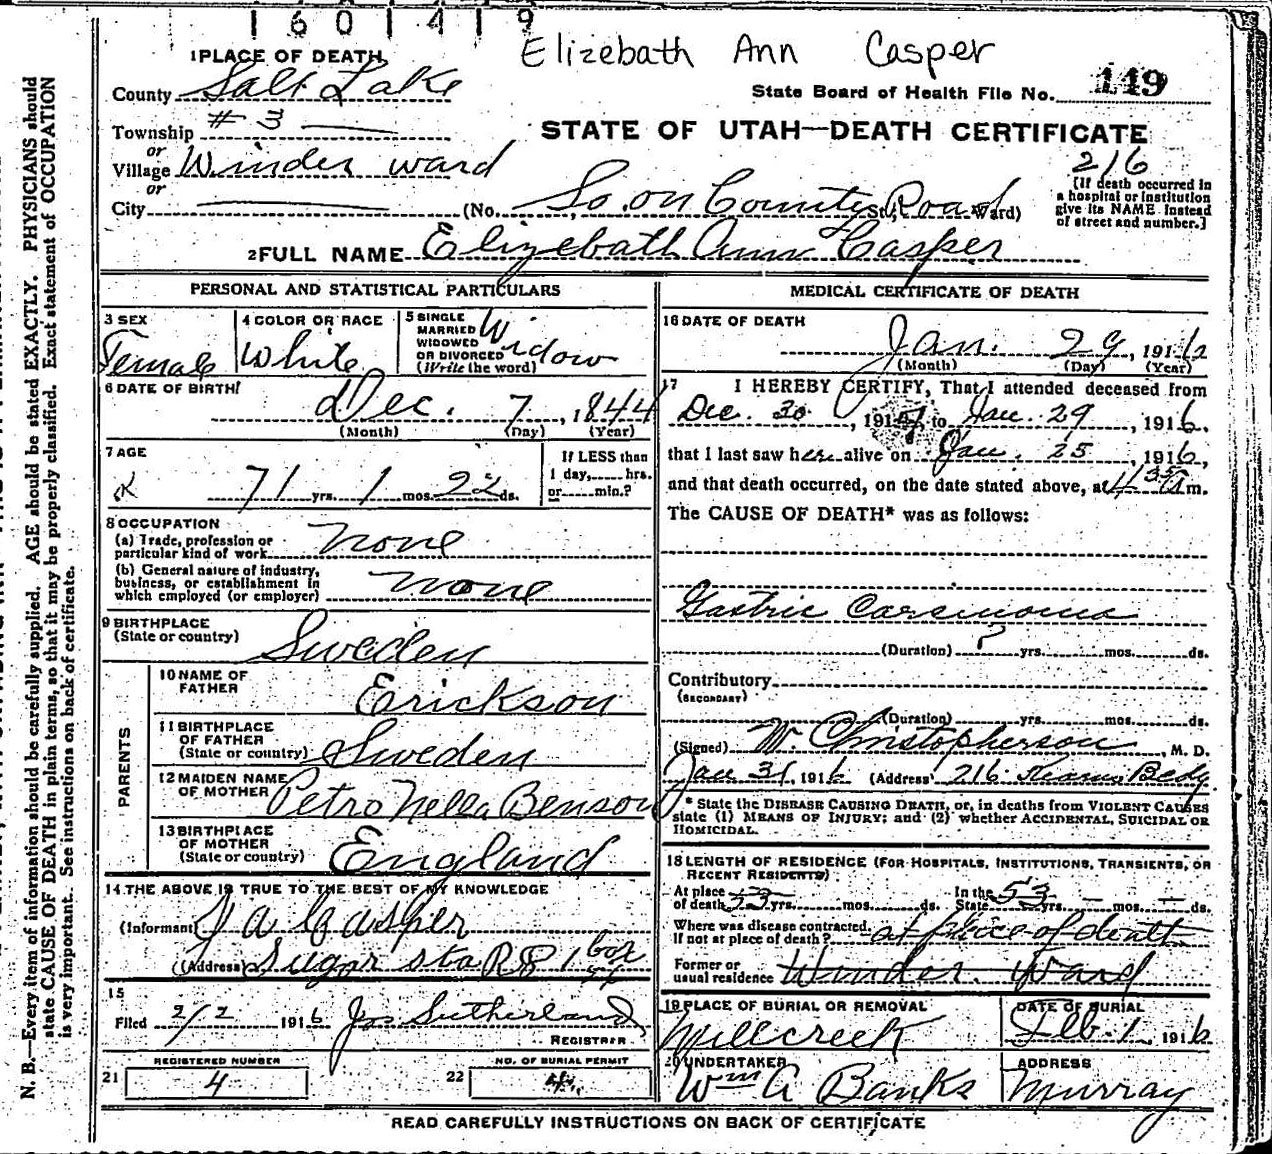 1 6 0 1 4 1 9
Elizebath Ann Casper
1 PLACE OF DEATH
County Salt Lake
State Board of Health File No. 149
Township #3
STATE OF UTAH—DEATH CERTIFICATE
or
Village Winder ward
216
or
City (No. So. on County Road St.; Ward)
[If death occurred in a hospital or institution give its NAME instead of street and number.]
2 FULL NAME Elizebath Ann Casper
PERSONAL AND STATISTICAL PARTICULARS
3 SEX Female
4 COLOR OR RACE White
5 SINGLE MARRIED WIDOWED OR DIVORCED (Write the word) Widow
6 DATE OF BIRTH
Dec. 7, 1844
(Month) (Day) (Year)
7 AGE
71 yrs. 1 mos. 22 ds.
If LESS than 1 day, hrs. or min.?
8 OCCUPATION
(a) Trade, profession or particular kind of work none
(b) General nature of industry, business, or establishment in which employed (or employer) none
9 BIRTHPLACE (State or country) Sweden
PARENTS
10 NAME OF FATHER Erickson
11 BIRTHPLACE OF FATHER (State or country) Sweden
12 MAIDEN NAME OF MOTHER Petro Nella Benson
13 BIRTHPLACE OF MOTHER (State or country) England
14 THE ABOVE IS TRUE TO THE BEST OF MY KNOWLEDGE
(Informant) J A Casper
(Address) Sugar sta R 1 box
15
Filed 2/2 1916 Jos Sutherland
REGISTRAR
REGISTERED NUMBER
21 4
NO. OF BURIAL PERMIT
22 4
MEDICAL CERTIFICATE OF DEATH
16 DATE OF DEATH
Jan. 29, 1916
(Month) (Day) (Year)
17 I HEREBY CERTIFY, That I attended deceased from
Dec. 30, 191 to Jan. 29, 1916,
that I last saw her alive on Jan. 25, 1916,
and that death occurred, on the date stated above, at 4 35 a m.
The CAUSE OF DEATH* was as follows:
Gastric Carsinoma
(Duration) ? yrs. mos. ds.
Contributory
(SECONDARY)
(Duration) yrs. mos. ds.
(Signed) W. Christopherson, M. D.
Jan 31, 1916 (Address) 216 Kearns Bldg
* State the DISEASE CAUSING DEATH, or, in deaths from VIOLENT CAUSES
state (1) MEANS OF INJURY; and (2) whether ACCIDENTAL, SUICIDAL OR
HOMICIDAL.
18 LENGTH OF RESIDENCE (FOR HOSPITALS, INSTITUTIONS, TRANSIENTS, OR
RECENT RESIDENTS)
At place of death yrs. mos. ds. In the State 53 yrs. — mos. — ds.
Where was disease contracted, If not at place of death? at place of death
Former or usual residence Winder Ward
19 PLACE OF BURIAL OR REMOVAL Millcreek
DATE OF BURIAL Feb. 1, 1916
20 UNDERTAKER Wm A Banks
ADDRESS Murray
READ CAREFULLY INSTRUCTIONS ON BACK OF CERTIFICATE
N. B.—Every item of information should be carefully supplied. AGE should be stated EXACTLY. PHYSICIANS should
state CAUSE OF DEATH in plain terms, so that it may be properly classified. Exact statement of OCCUPATION
is very important. See instructions on back of certificate.